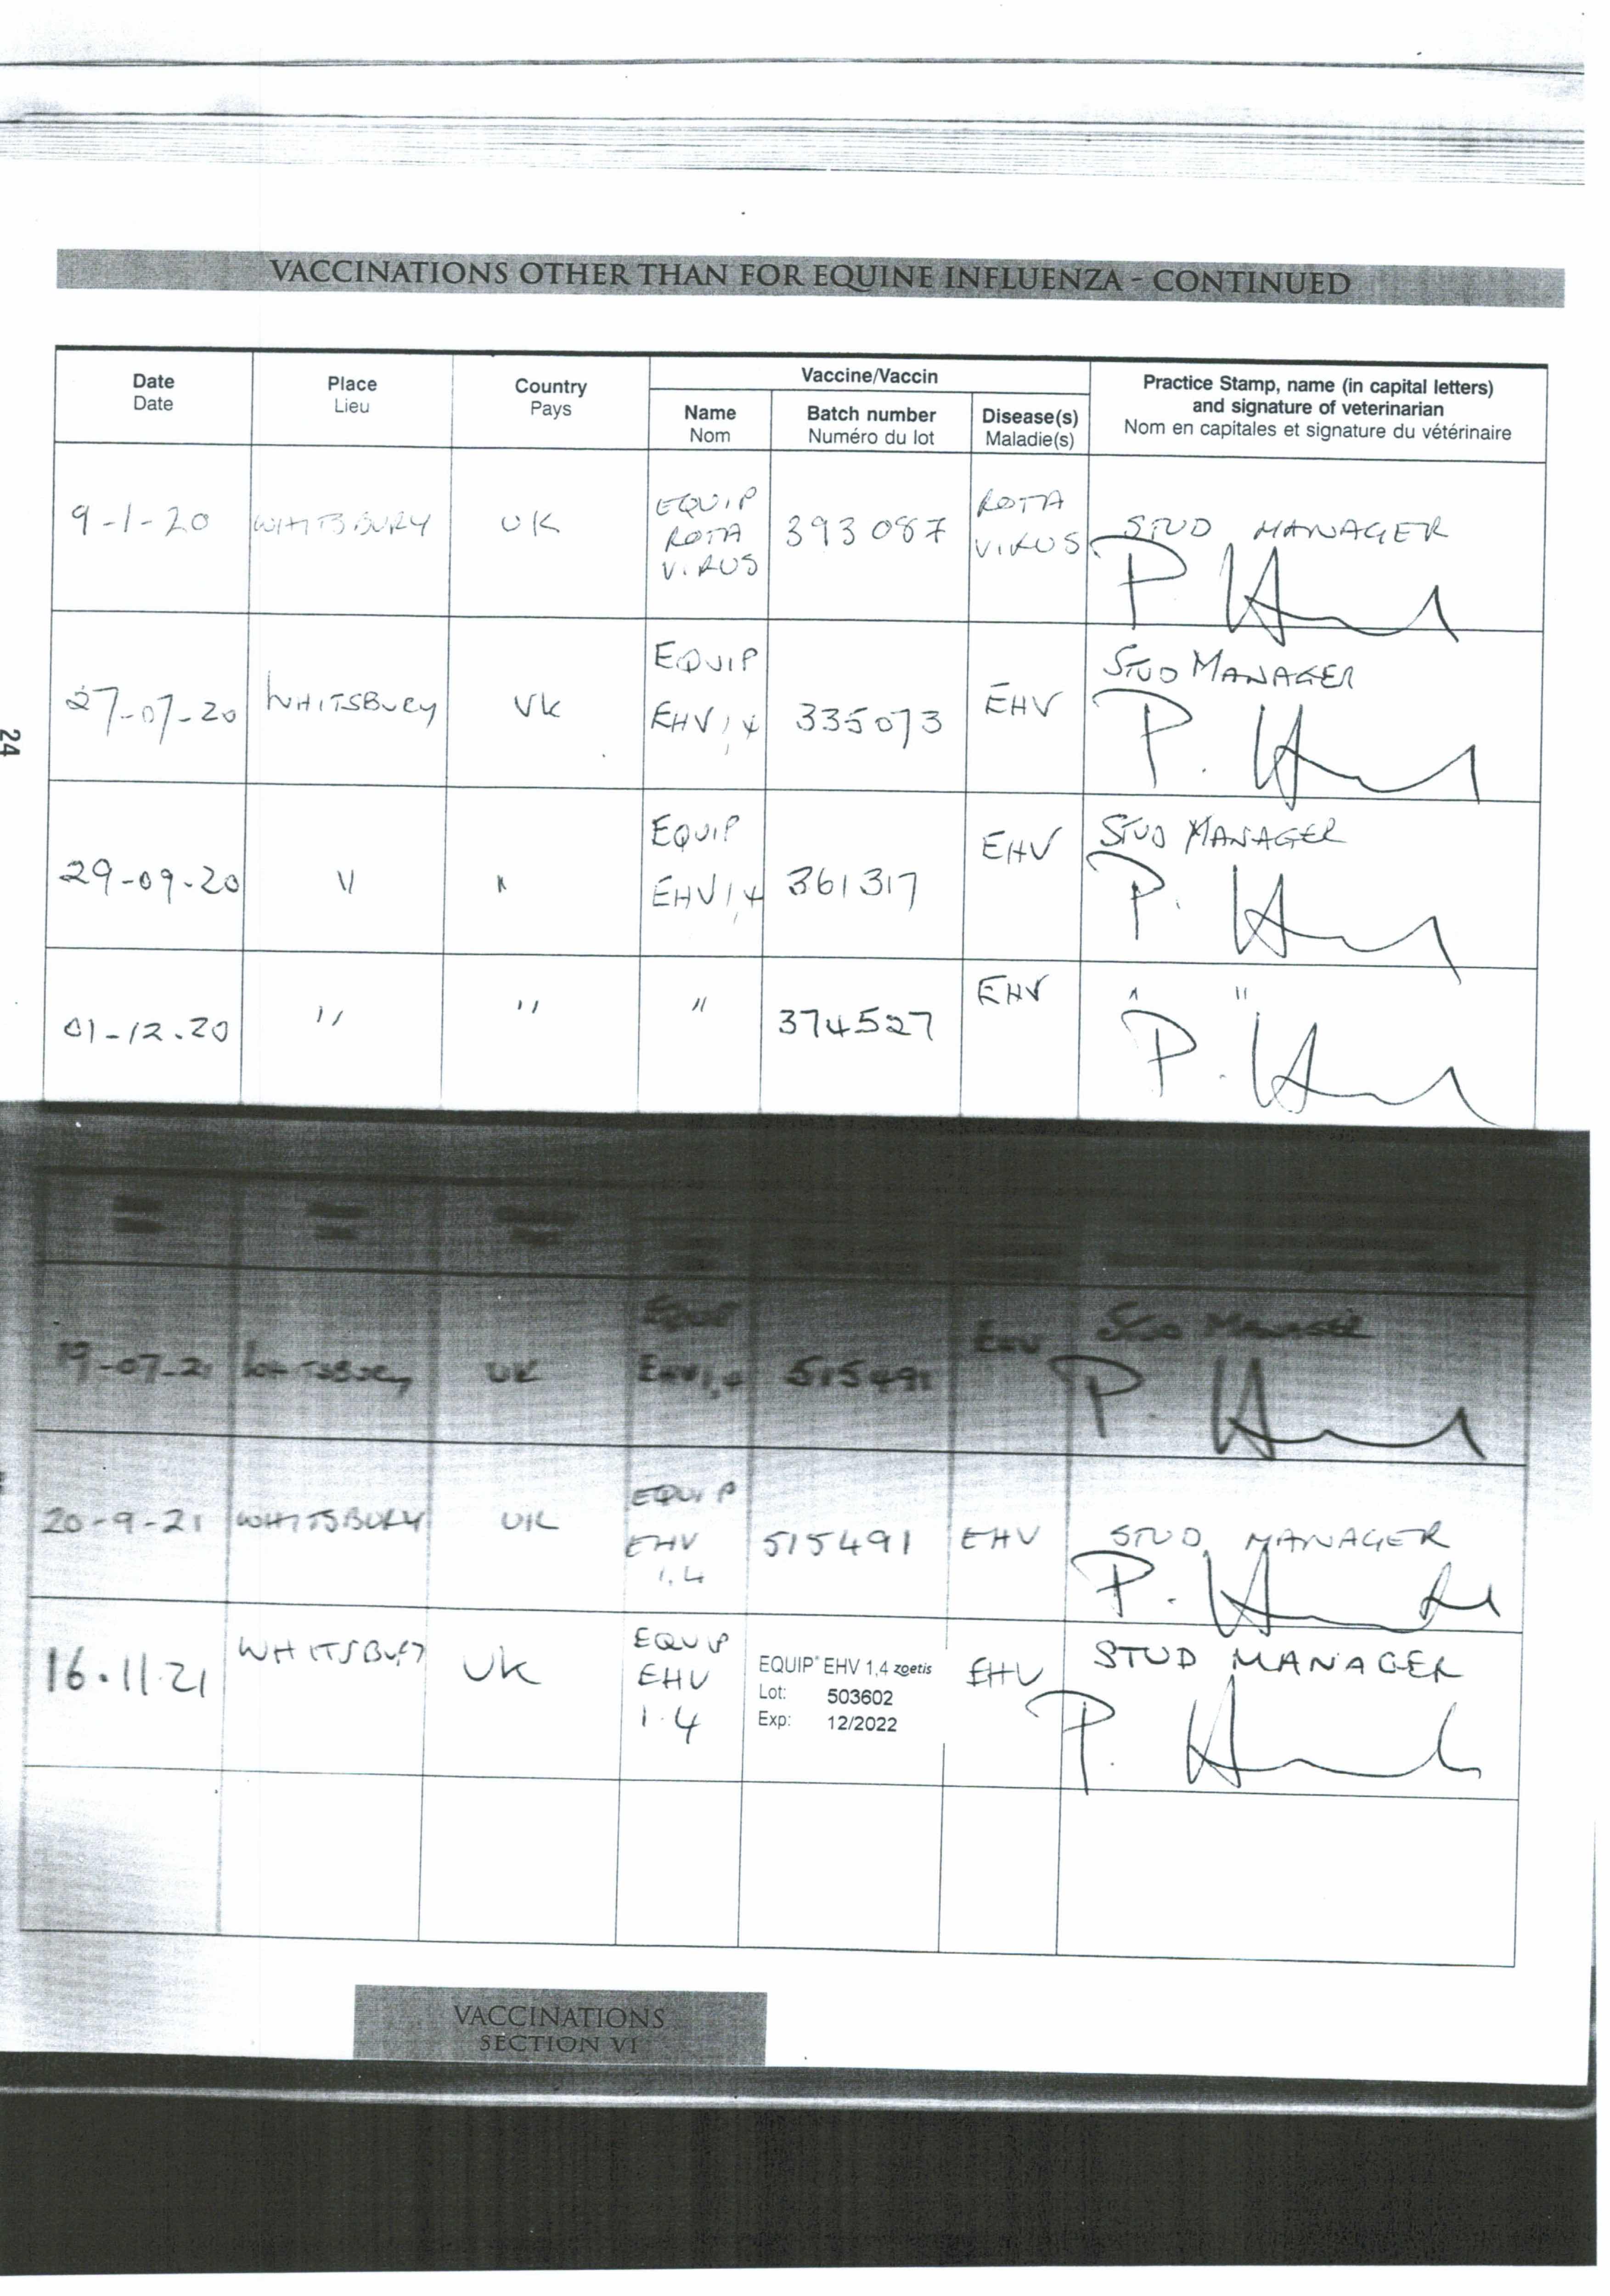 VACCINATIONS OTHER THAN FOR EQUINE INFLUENZA - CONTINUED
Date Place Country Vaccine/Vaccin Practice Stamp, name (in capital letters)
Date Lieu Pays and signature of veterinarian
Name Batch number Disease(s) Nom en capitales et signature du vétérinaire
Nom Numéro du lot Maladie(s)
9-1-20 WHITSBURY UK EQUIP ROTA VIRUS 393087 ROTA VIRUS STUD MANAGER
27-07-20 WHITSBURY UK EQUIP EHV 1,4 335073 EHV STUD MANAGER
24
29-09-20 " " EQUIP EHV 1,4 361317 EHV STUD MANAGER
01-12.20 " " " 374527 EHV " "
19-07-21 WHITSBURY UK EQUIP EHV 1,4 515491 EHV STUD MANAGER
20-9-21 WHITSBURY UK EQUIP EHV 1,4 515491 EHV STUD MANAGER
16.11.21 WHITSBURY UK EQUIP EHV 1.4 EQUIP® EHV 1,4 zoetis EHV STUD MANAGER
Lot: 503602
Exp: 12/2022
VACCINATIONS
SECTION VI